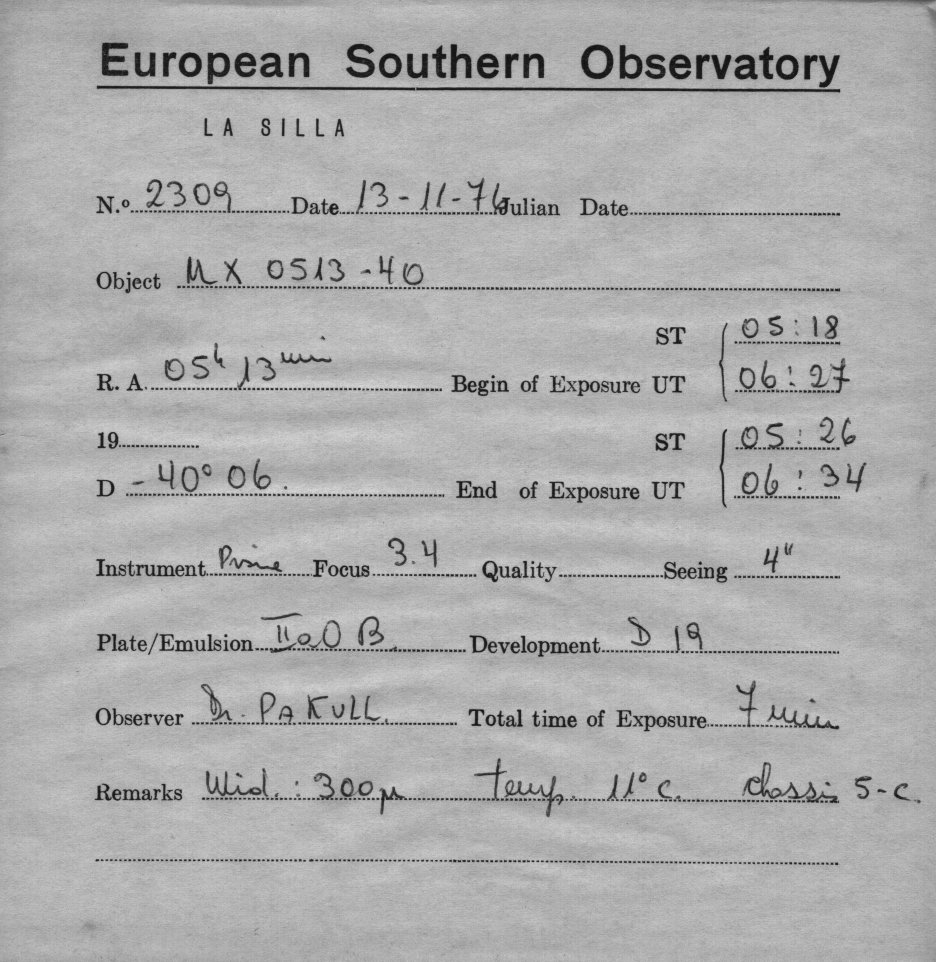 European Southern Observatory
LA SILLA
N.º 2309 Date 13-11-76 Julian Date
Object MX 0513-40
ST 05:18
R. A. 05h 13min Begin of Exposure UT 06:27
19 ST 05:26
D -40° 06. End of Exposure UT 06:34
Instrument Prime Focus 3.4 Quality Seeing 4"
Plate/Emulsion IIaO B. Development D 19
Observer Dr. PAKULL. Total time of Exposure 7 min
Remarks Wid.: 300µ temp. 11°C. chassis 5-C.